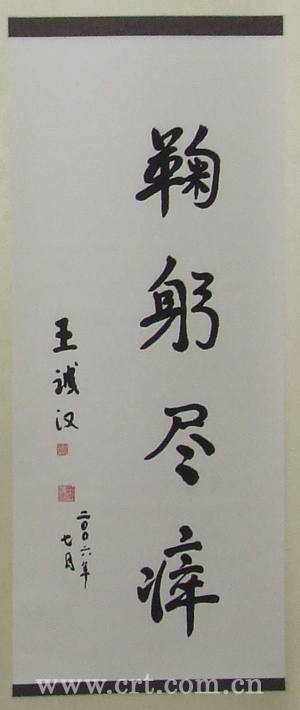 鞠躬尽瘁
王诚汉
二〇〇六年
七月
www.crt.com.cn